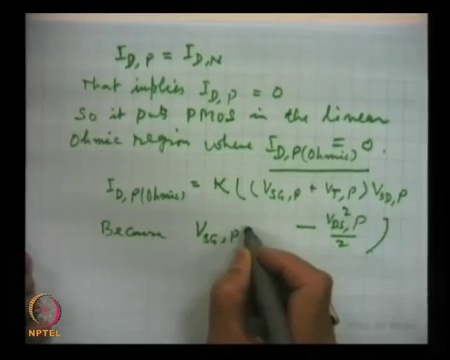 I_D,P = I_D,N
That implies I_D,P = 0
So it puts PMOS in the linear
Ohmic region where I_D,P(Ohmic) = 0.
I_D,P(Ohmic) = K ( (V_SG,P + V_T,P) V_SD,P
Because V_SG,P - V_DS,P^2 / 2 )
NPTEL